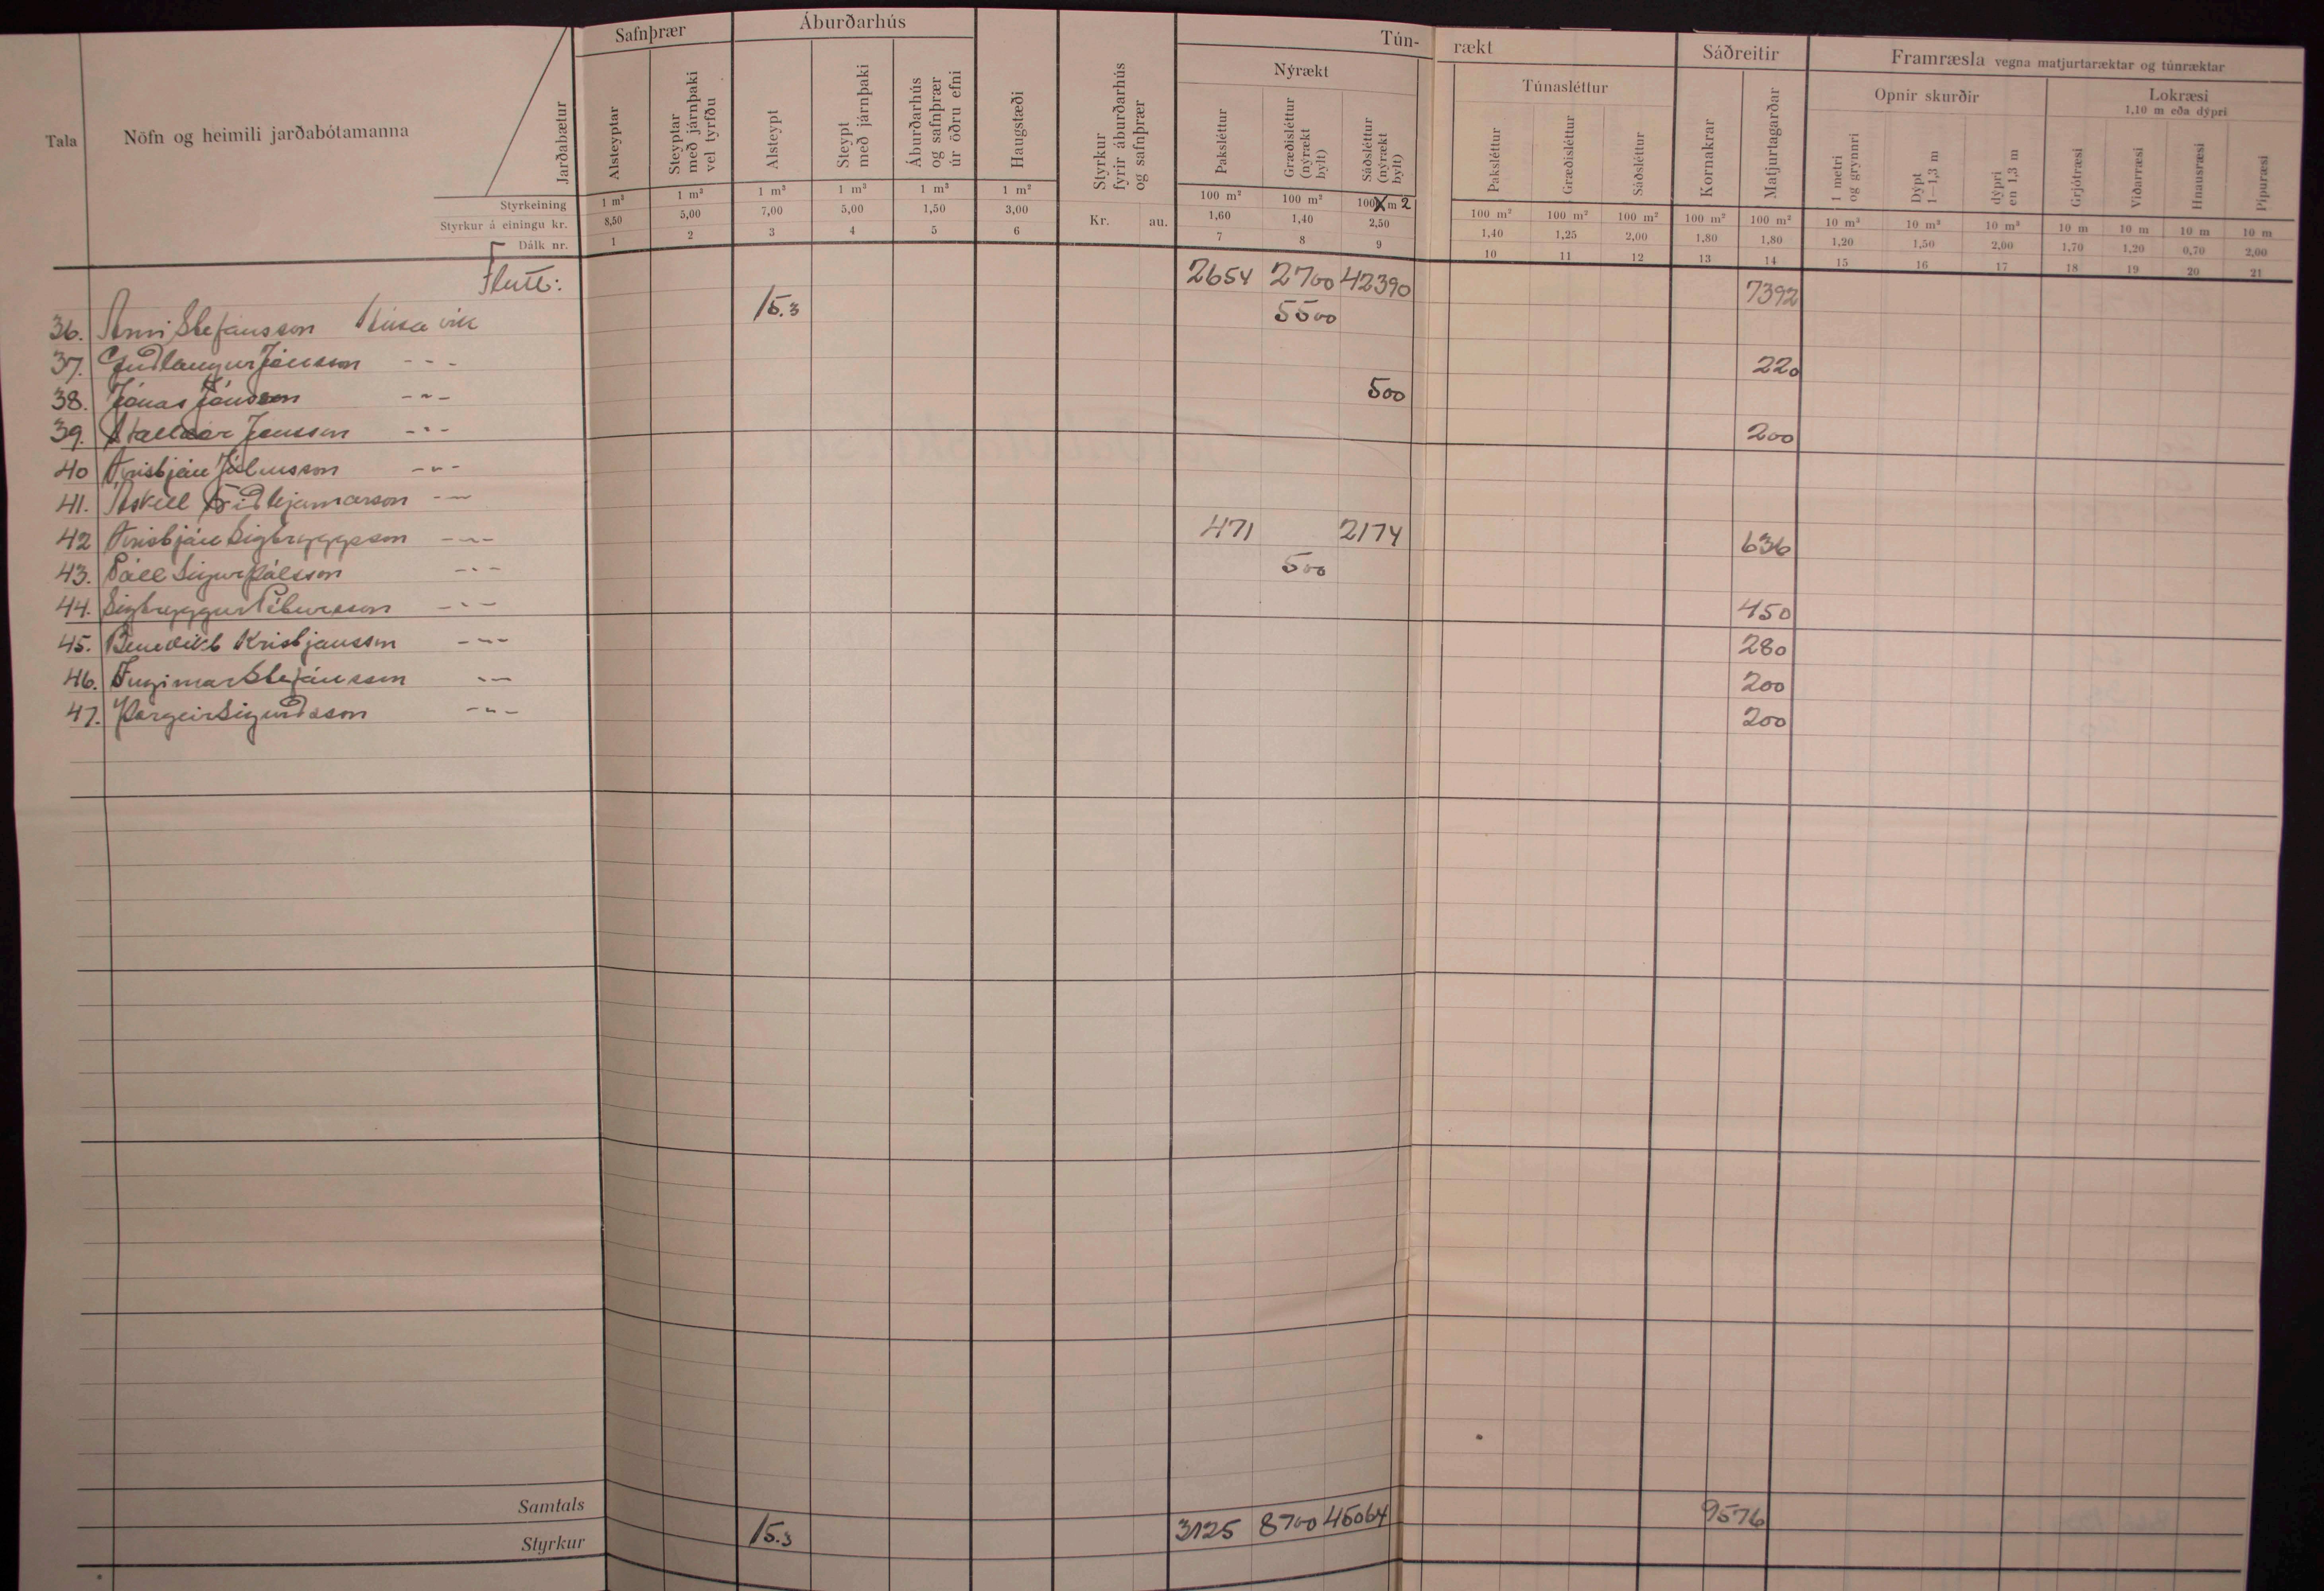 Safnþrær Áburðarhús Tún- rækt Sáðreitir Framræsla vegna matjurtaræktar og túnræktar
Nýrækt Túnasléttur Opnir skurðir Lokræsi
1,10 m eða dýpri
Tala Nöfn og heimili jarðabótamanna Jarðabætur
Alsteyptar
Steyptar með járnþaki vel tyrfðu
Alsteypt
Steypt með járnþaki
Áburðarhús og safnþrær úr öðru efni
Haugstæði
Styrkur fyrir áburðarhús og safnþrær
Þaksléttur
Græðisléttur (nýrækt bylt)
Sáðsléttur (nýrækt bylt)
Þaksléttur
Græðisléttur
Sáðsléttur
Kornakrar
Matjurtagarðar
1 metri og grynnri
Dýpt 1—1,3 m
dýpri en 1,3 m
Grjótræsi
Viðarræsi
Hnausræsi
Pípuræsi
Styrkeining 1 m³ 1 m³ 1 m³ 1 m³ 1 m³ 1 m² 100 m² 100 m² 100 m 2 100 m² 100 m² 100 m² 100 m² 100 m² 10 m³ 10 m³ 10 m³ 10 m 10 m 10 m 10 m
Styrkur á einingu kr. 8,50 5,00 7,00 5,00 1,50 3,00 Kr. au. 1,60 1,40 2,50 1,40 1,25 2,00 1,80 1,80 1,20 1,50 2,00 1,70 1,20 0,70 2,00
Dálk nr. 1 2 3 4 5 6 7 8 9 10 11 12 13 14 15 16 17 18 19 20 21
Flutt: 2654 2700 42390 7392
36. Árni Stefánsson Húsavík 15.3 5500
37. Guðlaugur Jónsson - - - 220
38. Jónas Jónsson - " - 500
39. Jónsson - " - 200
40 Kristján Júlíusson - " -
41. Áskell - " -
42 Kristján Sigtryggsson - " - 471 2174 636
43. Páll Sigurpálsson - " - 500
44. Sigtryggur Pétursson - " - 450
45. Benedikt Kristjánsson - " - 280
46. Stefánsson " - 200
47. Þorgeir Sigurðsson - " - 200
Samtals 15.3 3125 8700 45064 9576
Styrkur